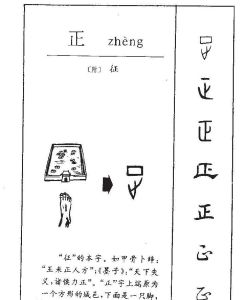 正 zhèng
〔附〕征
“征”的本字。如甲骨卜辞：
“王来正人方”；《墨子》：“天下失
义，诸侯力正”。“正”字上端原为
一个方形的城邑，下面是一只脚，